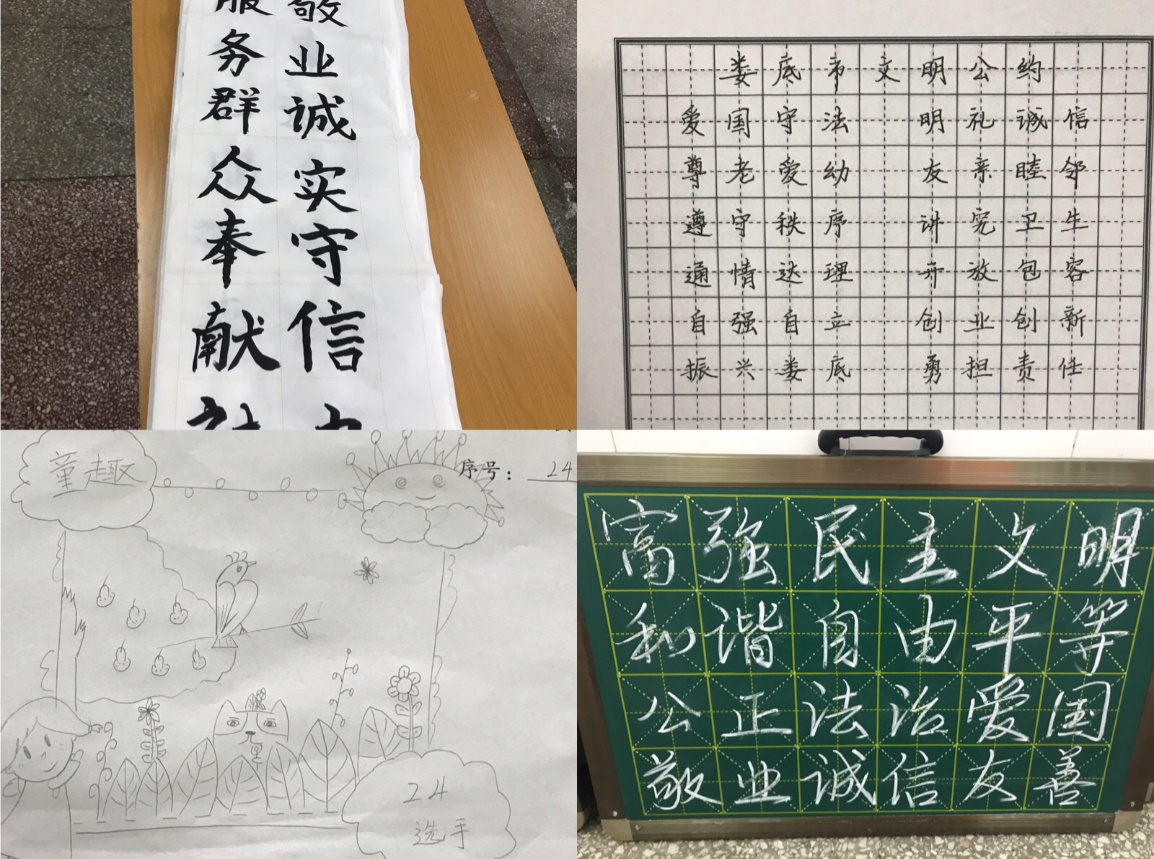 敬业诚实守信
服务群众奉献
娄底市文明公约
爱国守法 明礼诚信
尊老爱幼 友亲睦邻
遵守秩序 讲究卫生
通情达理 开放包容
自强自立 创业创新
振兴娄底 勇担责任
童趣
序号：24
24
选手
富强民主文明
和谐自由平等
公正法治爱国
敬业诚信友善